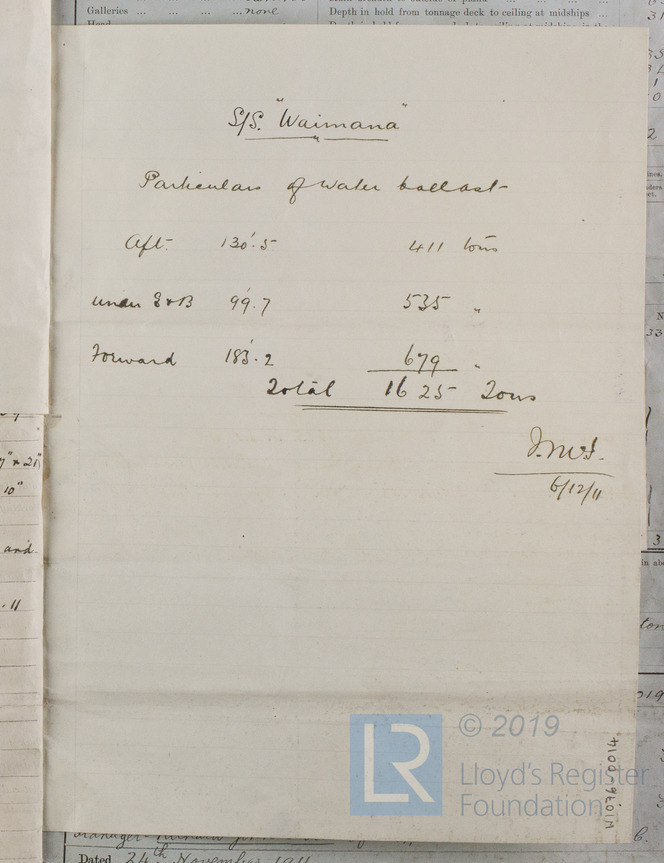 Galleries ... ... ... ... none
Depth in hold from tonnage deck to ceiling at midships ...
S/S. "Waimana"
Particulars of Water ballast
Aft. 130'.5 411 tons
under E & B 99'.7 535 "
Forward 183'.2 679 "
Total 1625 Tons
6/12/11
10"
and
.11
© 2019
LR
Lloyd's Register
Foundation
W1076-0014
Dated 24th November 1911